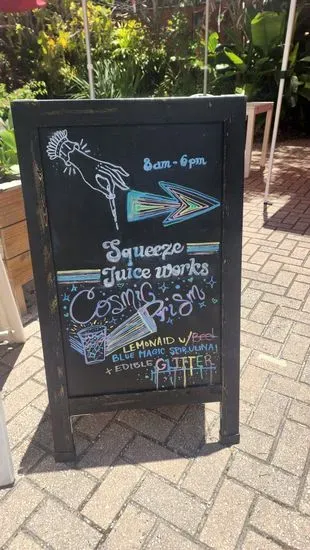 8am - 6pm
Squeeze
Juice works
Cosmic Prism
LEMONAID w/ Beet
BLUE MAGIC SPIRULINA
+ EDIBLE GLITTER